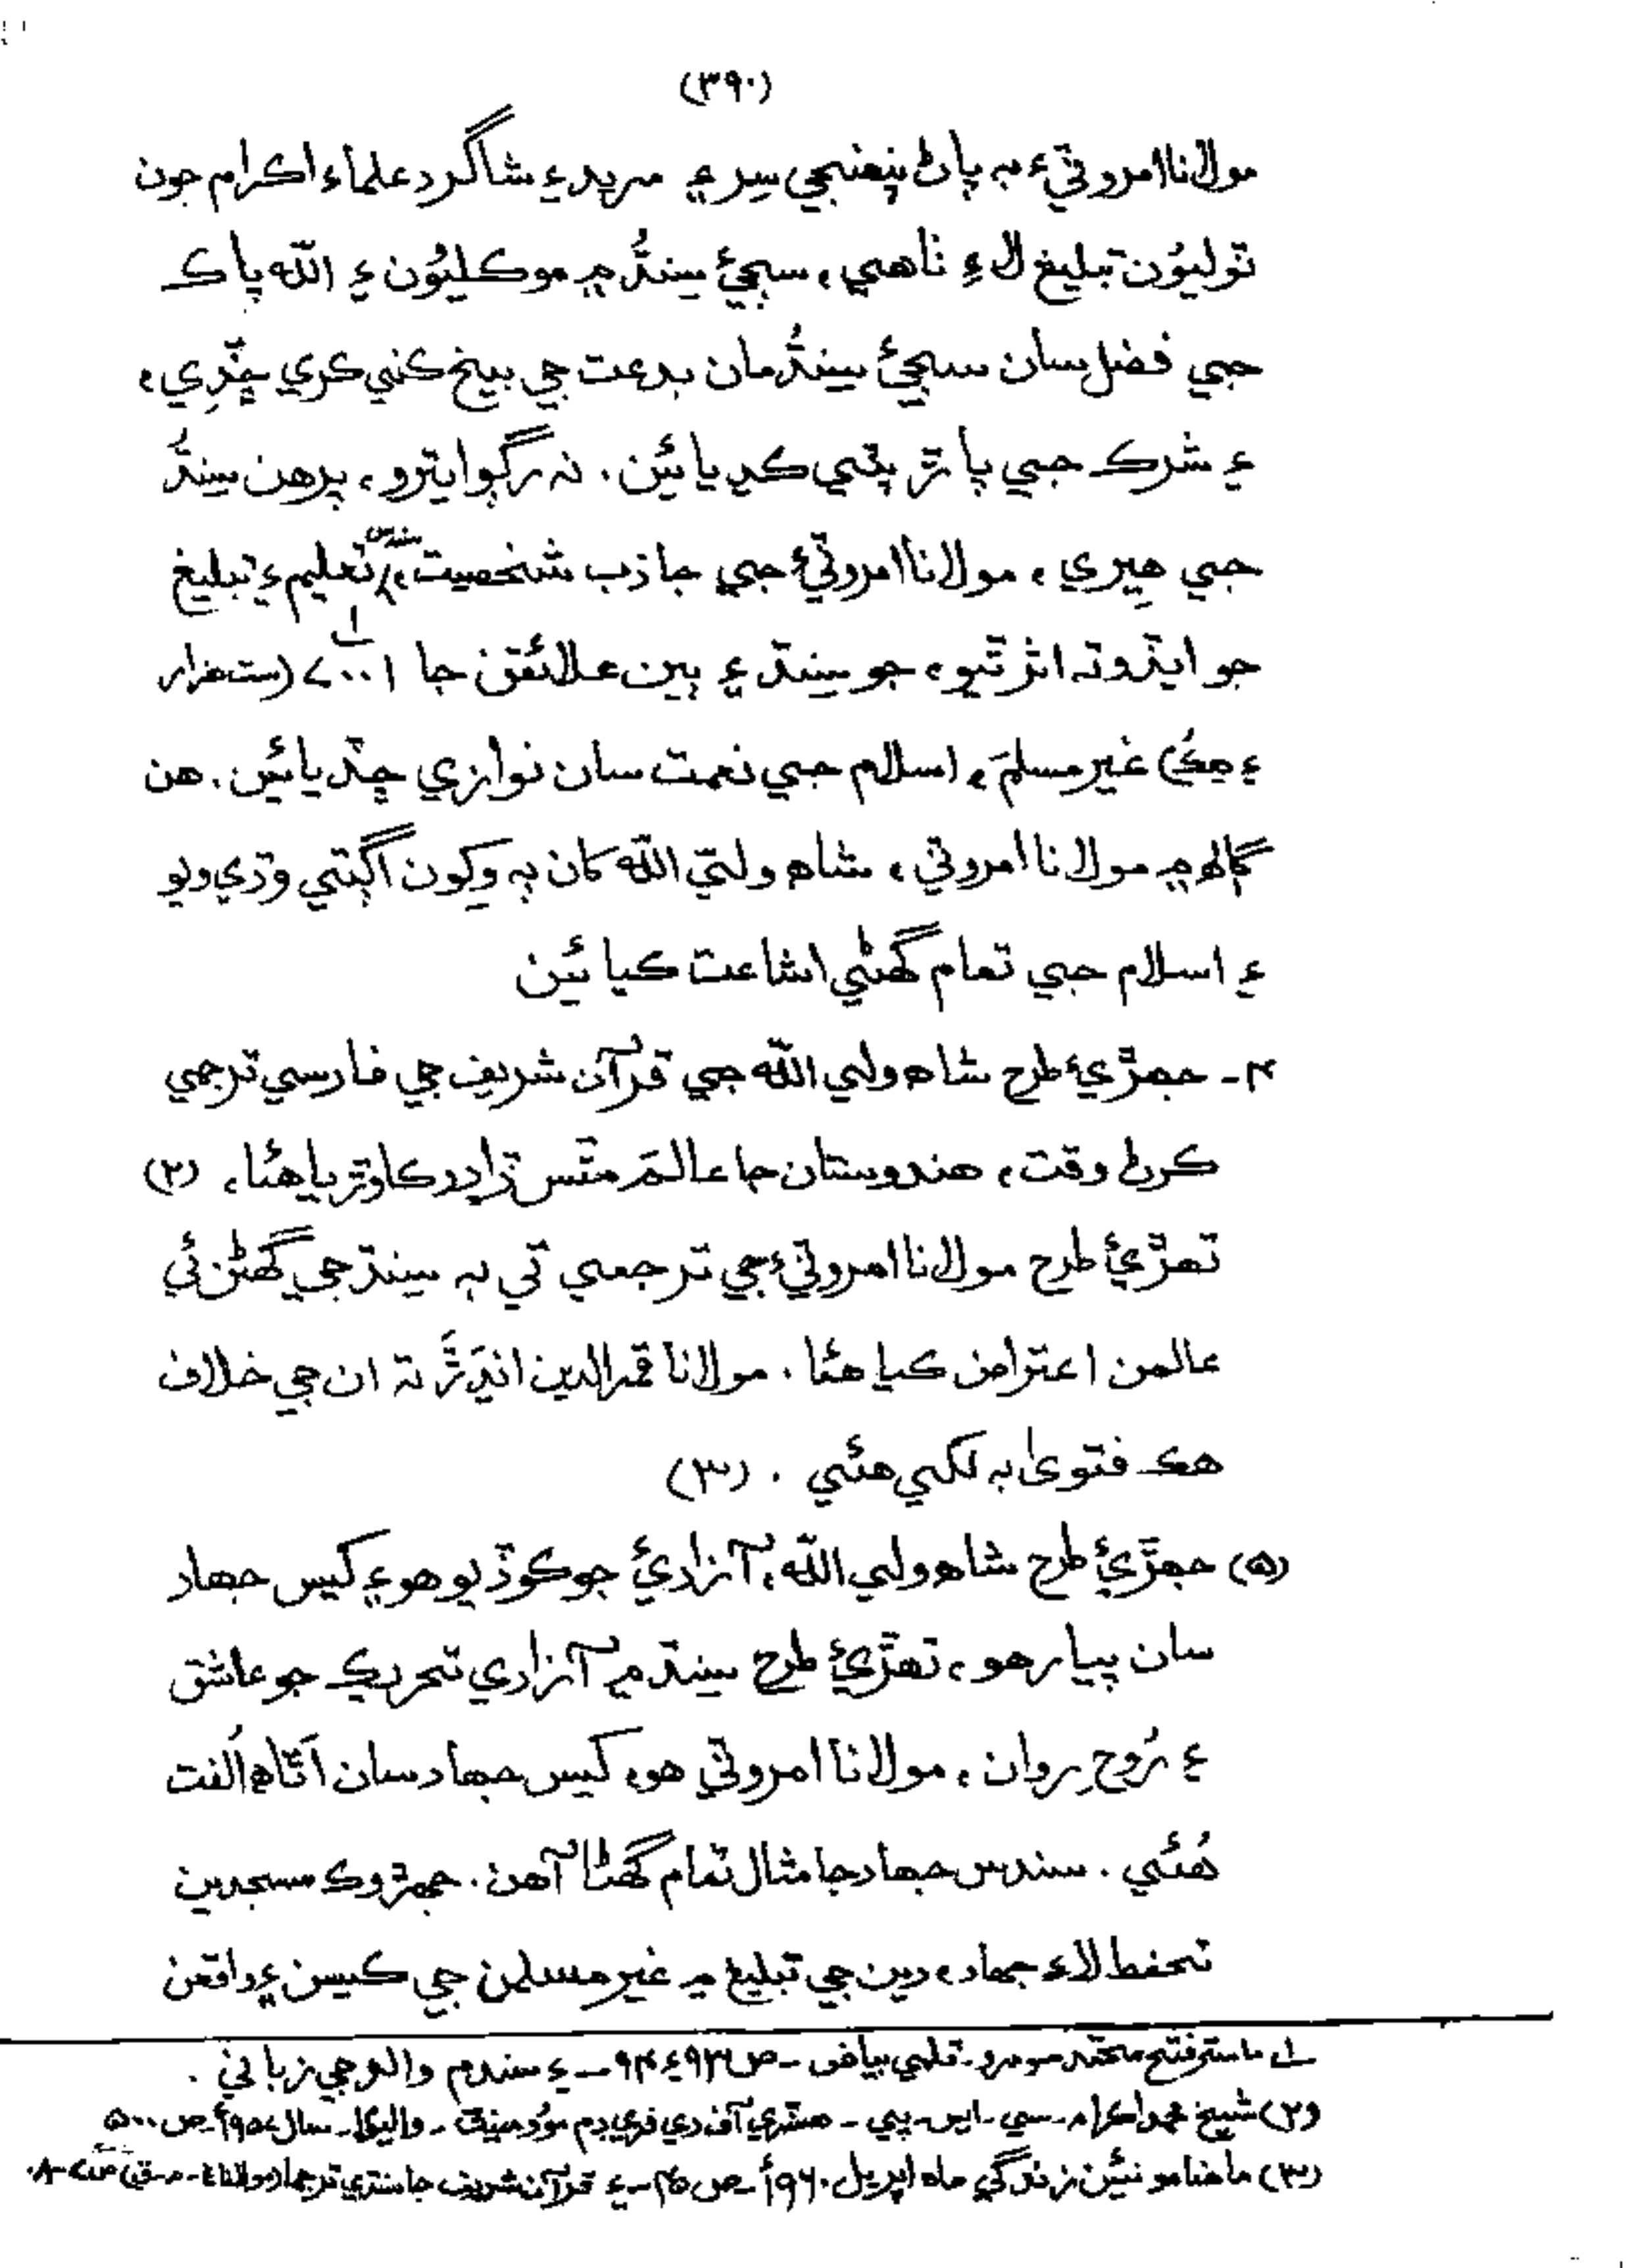 (۳۹۰)
مولانا امروٽيءَ بہ پاڻ پنھنجي سِر ۽ مريد ۽ شاگرد علماءِ اڪرام جون
ٽوليُون تبليغ لاءِ ٺاھي، سڄيءَ سِنڌُ ۾ موڪليُون ۽ اللّٰہ پاڪ
جي فضل سان سڄيءَ سِنڌُ مان بدعت جي بيخ ڪني ڪري ڇڏِي،
۽ شرڪ جي پاڙ پٽي ڪڍيائين. نہ رڳو ايترو، پر هن سِنڌُ
جي هِيري، مولانا امروٽيءَ جي جاذب شخصيت، سندس تعليم ۽ تبليغ
جو ايڏو تہ اثر ٿيو، جو سِنڌ ۽ ٻين علائقن جا ۷۰۰۱ (ست هزار
۽ هڪُ) غير مسلمَ، اسلام جي نعمت سان نوازي ڇڏيائين. هن
ڳالھ ۾ مولانا امروٽي، شاھ ولي اللّٰہ کان بہ وِکون اڳتي وڌي ويو
۽ اسلام جي تمام گھڻي اشاعت ڪيائين
۴ـ جھڙيءَ طرح شاھ ولي اللّٰہ جي قرآن شريف جي فارسي ترجمي
ڪرڻ وقت، هندوستان جا عالمَ مٿس ڏاڍو ڪاوڙيا هئا، (۲)
تھڙيءَ طرح مولانا امروٽيءَ جي ترجمي تي بہ سِنڌ جي گھڻن ئي
عالمن اعتراض ڪيا هئا. مولانا قمرالدين انڍَڙَ تہ ان جي خلاف
هڪ فتوىٰ بہ لکي هئي. (۳)
(۵) جھڙيءَ طرح شاھ ولي اللّٰہ، آزاديءَ جو ڪوڏيو هو ۽ کيس جھاد
سان پيار هو، تھڙيءَ طرح سِنڌ ۾ آزادي تحريڪ جو عاشق
۽ رُوحِ روان، مولانا امروٽي هو، کيس جھاد سان اَٿاھ اُلفت
هُئي. سندس جھاد جا مثال تمام گھڻا آهن. جھڙوڪ مسجدين
تحفظ لاءِ جھاد، دين جي تبليغ ۾ غير مسلمن جي ڪيسن ۽ واقعن
ـلـه ماستر فتح محمّد سومرو ـ قلمي بياض ـ ص ۹۳ ۽ ۹۴ ـ ۽ سندم والد جي زباني .
(۲) شيخ محمد اڪرام ـ سي ـ ايس ـ پي ـ هسٽري آف دي فريڊم موُومينٽ ـ واليم ـ سال ۱۹۵۷ع ص ۵۰۰
(۳) ماهنامو نئين زندگي ماھ اپريل ۱۹۶۰ع ـ ص ۴۵ ـ ۽ قرآن شريف جا سنڌي ترجما